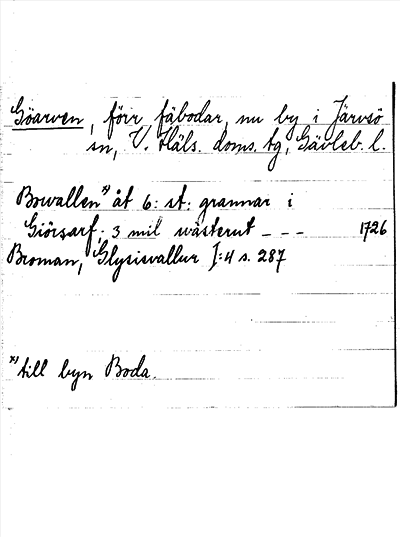 Göarven, förr fäbodar, nu by i Järvsö
sn, V. Häls. doms. tg, Gävleb. l.
Bowallen*) åt 6: st: grannar i
Giörsarf: 3 mil wästerut - - - 1726
Broman, Glysisvallur I:4 s. 287
*) till byn Boda.